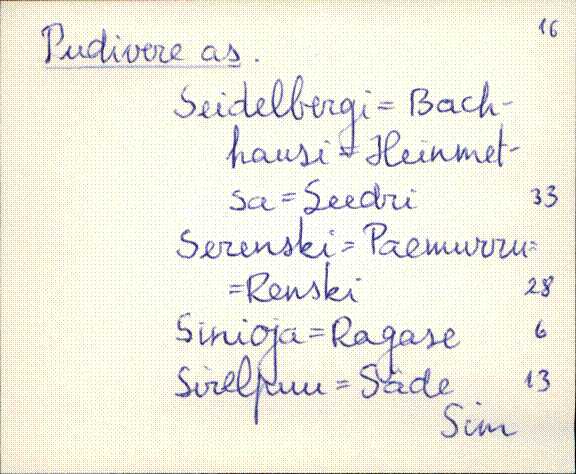 16
Pudivere as.
Seidelbergi = Bach-
hausi = Heinmet-
sa = Seedri 33
Serenski = Paemurru=
=Renski 28
Sinioja = Ragase 6
Sirelpuu = Säde 13
Sim